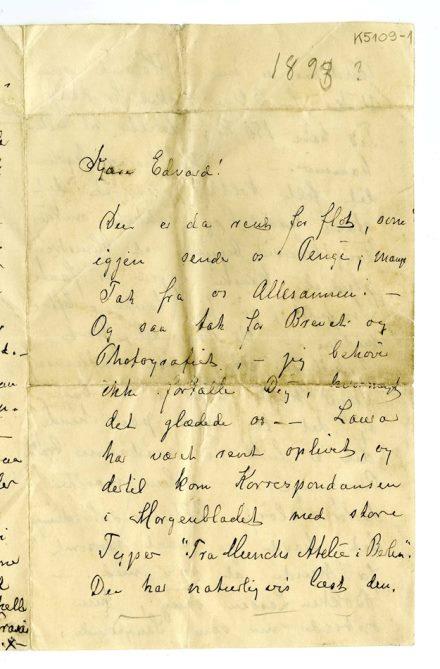 K5109-1
1893 ?
Kjære Edvard!
Du er da rent for flot, som
igjen sende os Penge; mange
Tak fra os Allesammen! —
Og saa tak for Brevet og
Photografiet, — jeg behøve
ikke fortælle Dig, hvormeget
det glædede os — Laura
har været rent oplivet, og
dertil kom Korrespondansen
i Morgenbladet med store
Typer "Fra Munchs Atelie i Berlin".
Du har naturligvis læst den.